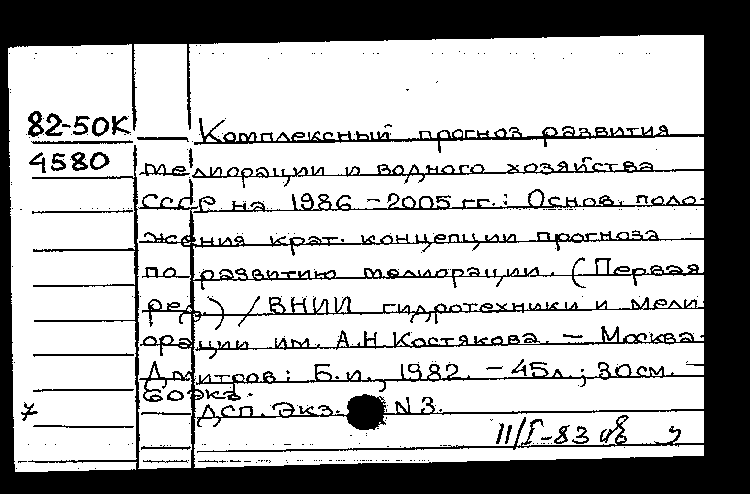 82-50К
4580
Комплексный прогноз развития
мелиорации и водного хозяйства
СССР на 1986 – 2005 гг.: Основ. поло-
жения крат. концепции прогноза
по развитию мелиорации. (Первая
ред.) / ВНИИ гидротехники и мели-
орации им. А.Н. Костякова. – Москва-
Дмитров: Б.и., 1982. – 45л.; 30см. –
60 экз.
ДСП. Экз. N 3.
11/I-83